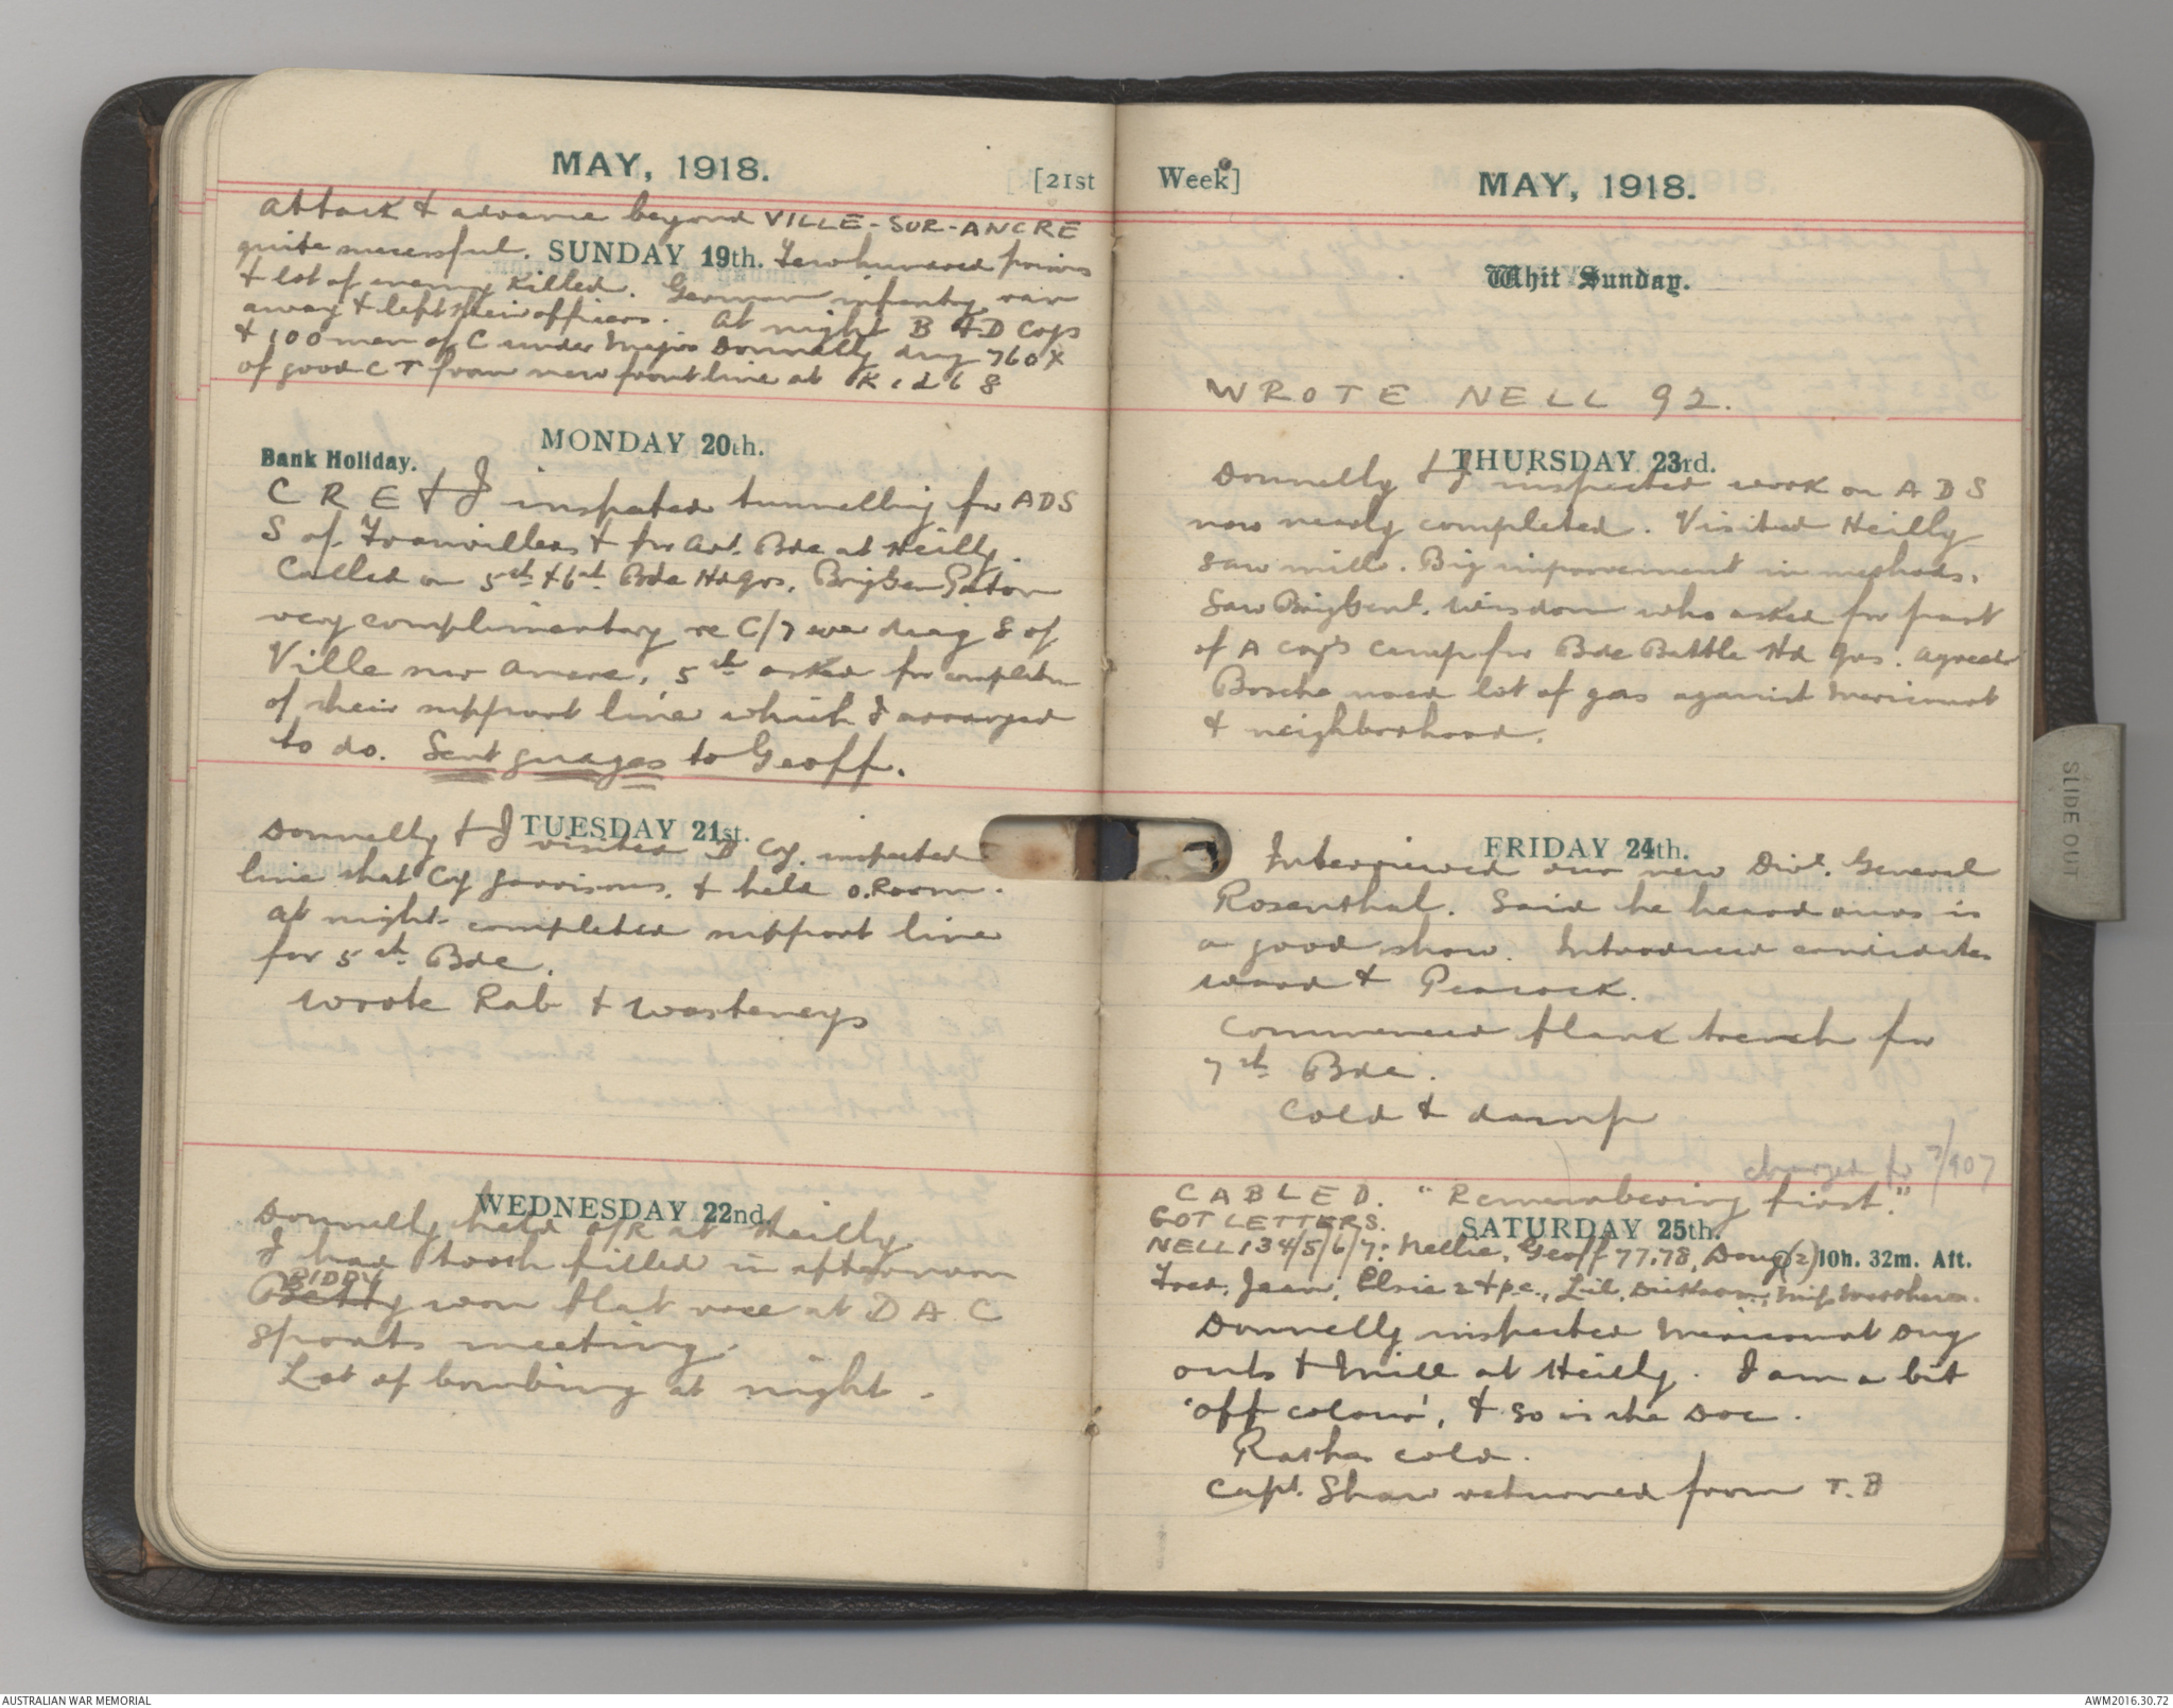 MAY, 1918.
[21st
attack & advance beyond VILLE-SUR-ANCRE
quite successful. SUNDAY 19th. Few hundred prisrs
& lot of enemy killed. German infantry ran
away & left their officers. At night B & D Coys
& 100 men of C under Major Donnelly dug 760 X
of good C T from new front line at K 1 d 6 8
MONDAY 20th.
Bank Holiday.
C R E & I inspected tunnelling for ADS
S of Franvillers & for Art. Bde at Heilly.
Called on 5th & 6th Bde Hdqrs. Brig Gen Paton
very complimentary re C/7 dug S of
Ville sur Ancre, 5th asked for completion
of their support line which I arranged
to do. Sent guages to Geoff.
TUESDAY 21st.
Donnelly & I visited D Coy. inspected
line that Coy garrisons, & held O.Room.
At night completed support line
for 5th Bde.
Wrote Rab & Wasteneys
WEDNESDAY 22nd.
Donnelly held O/R at Heilly.
I had tooth filled in afternoon
BIDDY
Betty won flat race at D A C
Sports meeting.
Lot of bombing at night.
Week]
MAY, 1918.
Whit Sunday.
WROTE NELL 92.
THURSDAY 23rd.
Donnelly & I inspected work on A D S
now nearly completed. Visited Heilly
Saw mill. Big improvement in methods.
Saw Brig Genl. Wisdom who asked for part
of A coy's camp for Bde Battle Hd Qrs. agreed
Bosche used lot of gas against Mericourt
& neighborhood.
FRIDAY 24th.
Interviewed our new Divl. General
Rosenthal. Said he heard ours is
a good show. Introduced candidates
Ward & Peacock.
Commenced flank trench for
7th Bde.
Cold & damp
charged fr 7/907
CABLED. "Remembering first."
GOT LETTERS.
SATURDAY 25th.
NELL 134/5/6/7: Nellie, Geoff 77,78, Doug (2) 10h. 32m. Aft.
Fred, Jean, Elsie 2 & p.c., Lil, Dickson,
Donnelly inspected Mericourt dug
outs & Mill at Heilly. I am a bit
'off colour', & so is the Doc.
Rather cold.
Capt. Shaw returned from T.B
SLIDE OUT
AUSTRALIAN WAR MEMORIAL
AWM2016.30.72